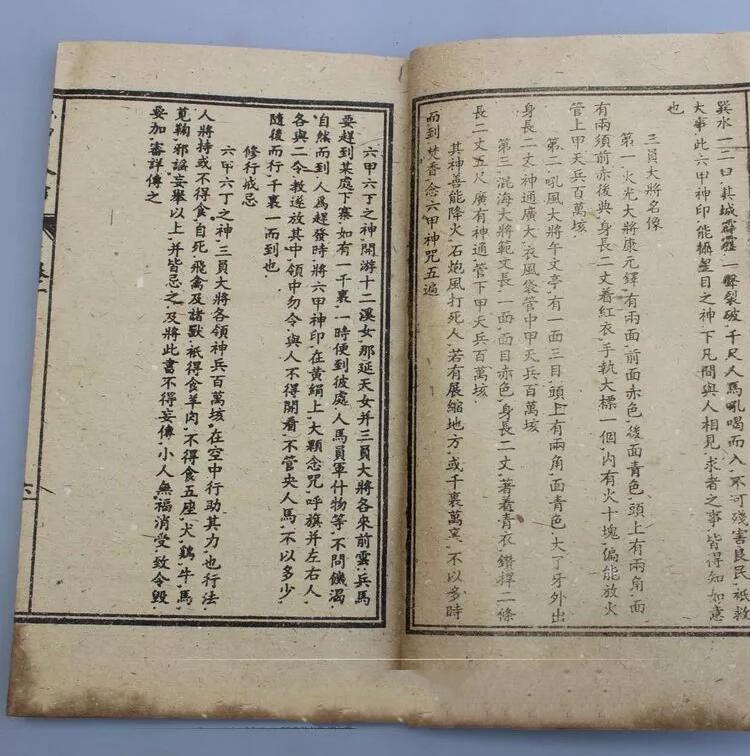 巽水一二口其城霹靂一聲裂破千尺人馬吼喝而入不可殘害良民衹救
大事此六甲神印能攝星日之神下凡間與人相見求者之事皆得知如意
也
三員大將名像
第一火光大將康元鐸有兩面前面赤色後面青色頭上有兩角面
有兩須前赤後與身長二丈着紅衣手執大標一個內有火十塊偏能放火
管上甲天兵百萬垓
第二吼風大將午文亭有一面三目頭上有兩角面青色大丁牙外出
身長二丈神通廣大衣風袋管中甲天兵百萬垓
第三混海大將範文長一面面目赤色身長二丈著着青衣鑽擇二條
長二丈五尺廣有神通管下甲天兵百萬垓
其神善能降火石炮風打死人若有展縮地方或千裏萬窯不以多時
而到焚香念六甲神咒五遍
六甲六丁之神開游十二溪女那延天女并三員大將各來前雲兵馬
要趕到某處下寨如有一千裏一時便到彼處人馬員軍什物等不問饑渴
自然而到人爲趕發時將六甲神印在黃絹上大顆念咒呼旗并左右人
各與二令教遂放其中領中勿令與人不得開看不管央人馬不以多少
隨後而行千裏一而到也
修行戒忌
六甲六丁之神三員大將各領神兵百萬垓在空中行助其力也行法
人將持或不得食自死飛禽及諸獸衹得食羊肉不得食五座犬鷄牛馬
莧鞠邪謡妄舉以上并皆忌之及將此書不得妄傳小人無福消受致令毀
要加審詳傳之